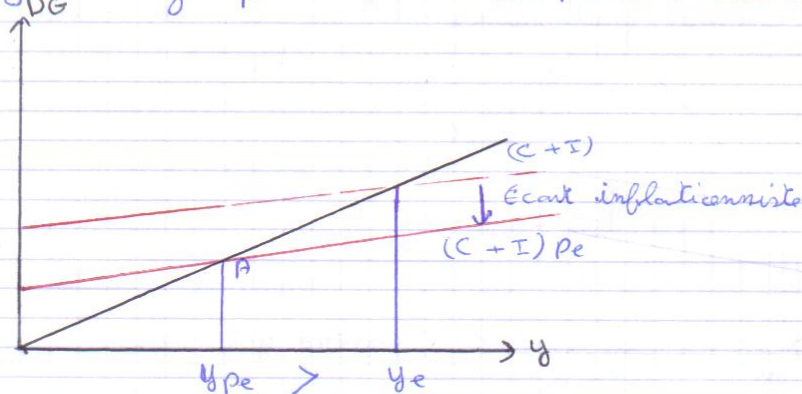 DG
(C + I)
Écart inflationniste
(C + I) Pe
A
y
yPe > ye